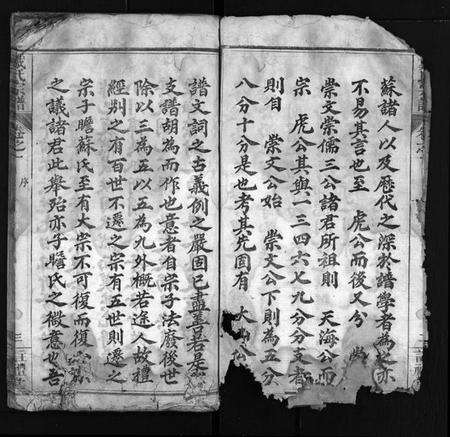 蘇諸人以及歷代之深於譜學者為之亦
不易其言也至 虎公而後又分
崇文崇儒三公諸君所祖則 天海公而
宗 虎公其與一三四六七九分分支都
則自 崇文公始 崇文公下則為五分
八分十分是也考其先固有
譜文詞之古義例之嚴固已盡善若是
支譜胡為而作也意者自宗子法廢後世
除以三為五以五為九外概若途人故禮
經別之有百世不遷之宗有五世則遷之
宗子瞻蘇氏至有大宗不可復而復
之議諸君此舉殆亦子瞻氏之微意也吾
卷之一
序